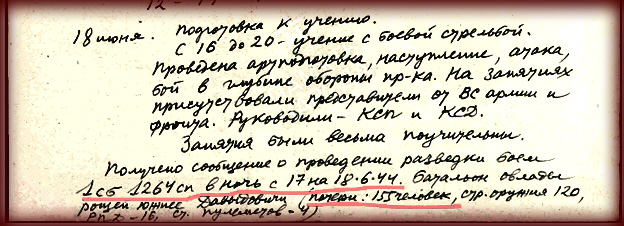 18 июня. Подготовка к учению.
С 16 до 20 - учение с боевой стрельбой.
Проведена артподготовка, наступление, атака,
бой в глубине обороны пр-ка. На занятиях
присутствовали представители от ВС армии и
фронта. Руководили - КСП и КСД.
Занятия были весьма поучительны.
Получено сообщение о проведении разведки боем
1 сб 1264 сп в ночь с 17 на 18.6.44. Батальон овладел
рощей южнее Давыдовичи (потери: 155 человек, стр. оружия 120,
РПД - 16, ст. пулеметов - 4)